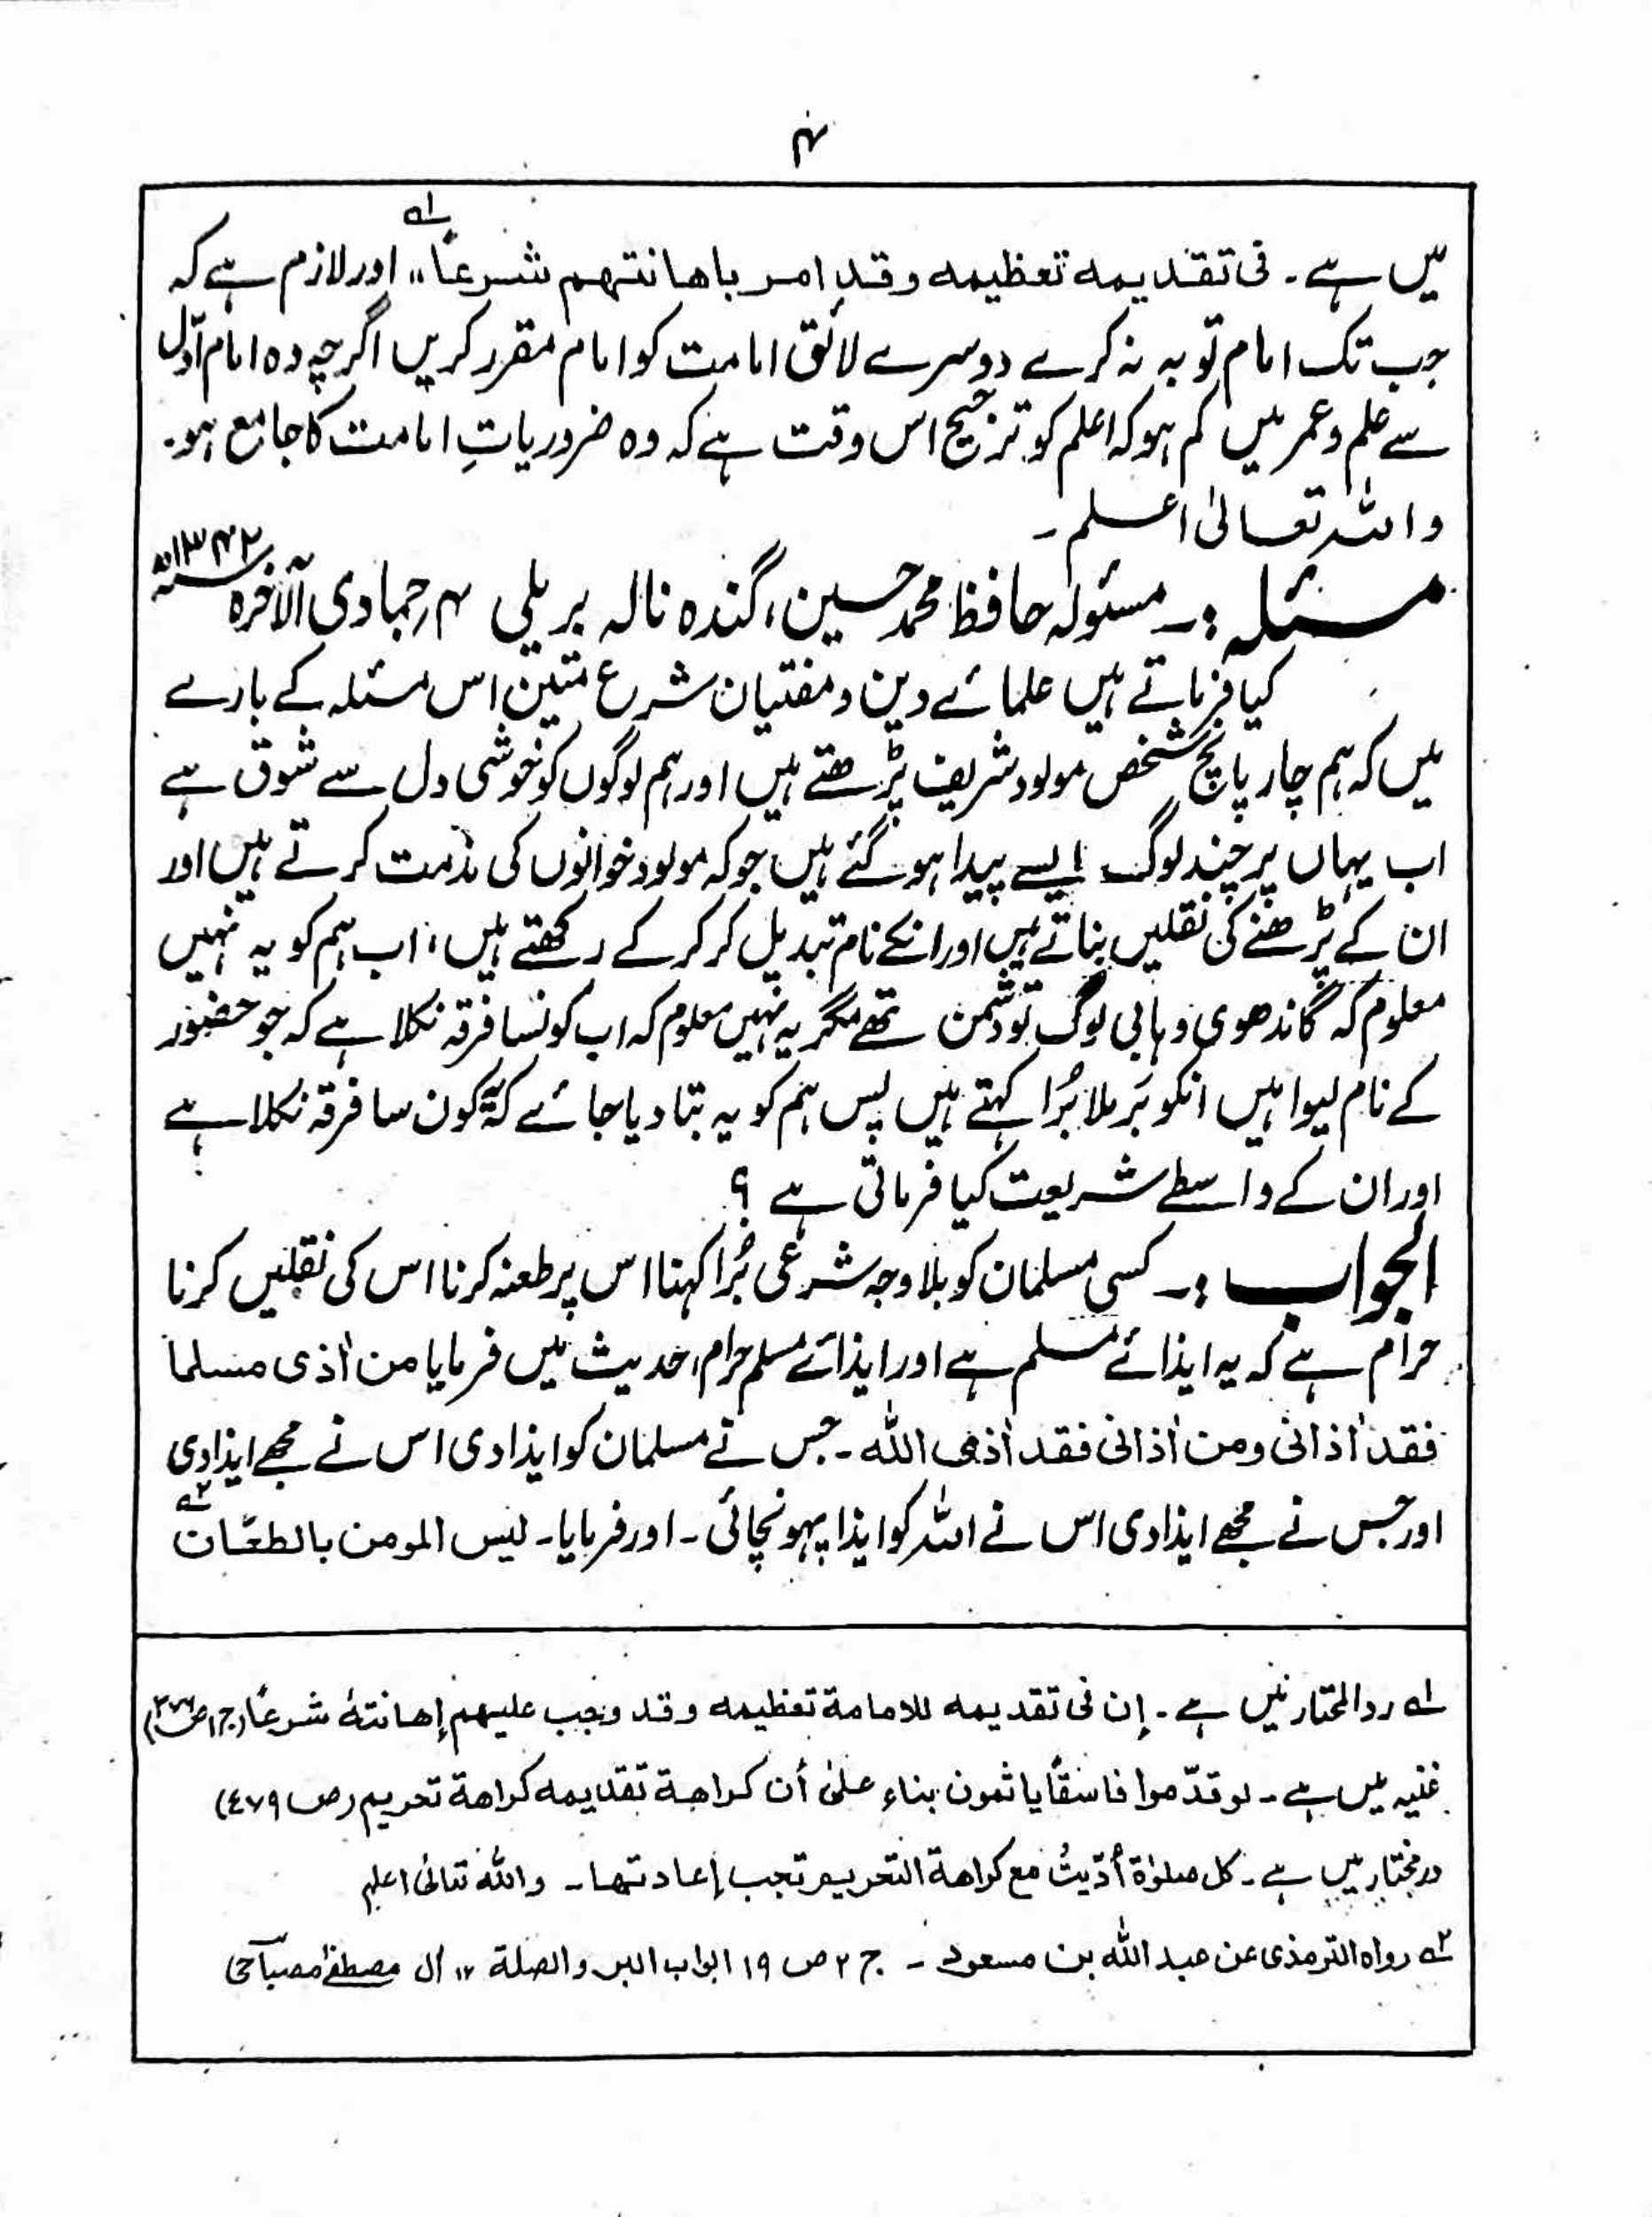 ۴
میں ہے۔ فی تقدیمہ تعظیمہ وقد امر باھانتہم شرعاً،، لہ اور لازم ہے کہ
جب تک امام توبہ نہ کرے دوسرے لائق امامت کو امام مقرر کریں اگرچہ وہ امام اول
سے علم و عمر میں کم ہو کہ اعلم کو ترجیح اس وقت ہے کہ وہ ضروریاتِ امامت کا جامع ہو۔
واللہ تعالیٰ اعلم۔
مسئلہ :۔ مسئولہ حافظ محمد حسین، گندہ نالہ بریلی ۴ جمادی الآخرہ سنہ ۱۳۴۲ھ
کیا فرماتے ہیں علمائے دین و مفتیان شرع متین اس مسئلہ کے بارے
میں کہ ہم چار پانچ شخص مولود شریف پڑھتے ہیں اور ہم لوگوں کو خوشی دل سے شوق ہے
اب یہاں پر چند لوگ ایسے پیدا ہو گئے ہیں جو کہ مولود خوانوں کی مذمت کرتے ہیں اور
ان کے پڑھنے کی نقلیں بناتے ہیں اور انکے نام تبدیل کر کر کے رکھتے ہیں، اب ہم کو یہ نہیں
معلوم کہ گاندھوی وہابی لوگ تو دشمن تھے مگر یہ نہیں معلوم کہ اب کونسا فرقہ نکلا ہے کہ جو حضور
کے نام لیوا ہیں انکو بَر ملا بُرا کہتے ہیں پس ہم کو یہ بتا دیا جائے کہ یہ کون سا فرقہ نکلا ہے
اور ان کے واسطے شریعت کیا فرماتی ہے ؟
الجواب :۔ کسی مسلمان کو بلا وجہ شرعی بُرا کہنا اس پر طعنہ کرنا اس کی نقلیں کرنا
حرام ہے کہ یہ ایذائے مسلم ہے اور ایذائے مسلم حرام، حدیث میں فرمایا من اٰذی مسلما
فقد اٰذانی ومن اٰذانی فقد اٰذی اللہ ۔ جس نے مسلمان کو ایذا دی اس نے مجھے ایذا دی
اور جس نے مجھے ایذا دی اس نے اللہ کو ایذا پہونچائی۔ اور فرمایا۔ لیس المومن بالطعّان ۲ہ
لہ رد المحتار میں ہے۔ إن فی تقدیمہ للامامۃ تعظیمہ وقد وجب علیہم إھانتہٗ شرعًا (ج۱ ص۳۷۶)
غنیہ میں ہے۔ لو قدّموا فاسقًا یاثمون بناء علیٰ أن کراھۃ تقدیمہ کراھۃ تحریم (ص ٤٧٩)
درمختار میں ہے۔ کل صلوٰۃ أُدّیتْ مع کراھۃ التحریم تجب إعادتہا۔ واللہ تعالیٰ اعلم
۲ہ رواہ الترمذی عن عبد اللہ بن مسعود ۔ ج ۲ ص ۱۹ ابواب البر والصلۃ ۱۲ آل مصطفےٰ مصباحی